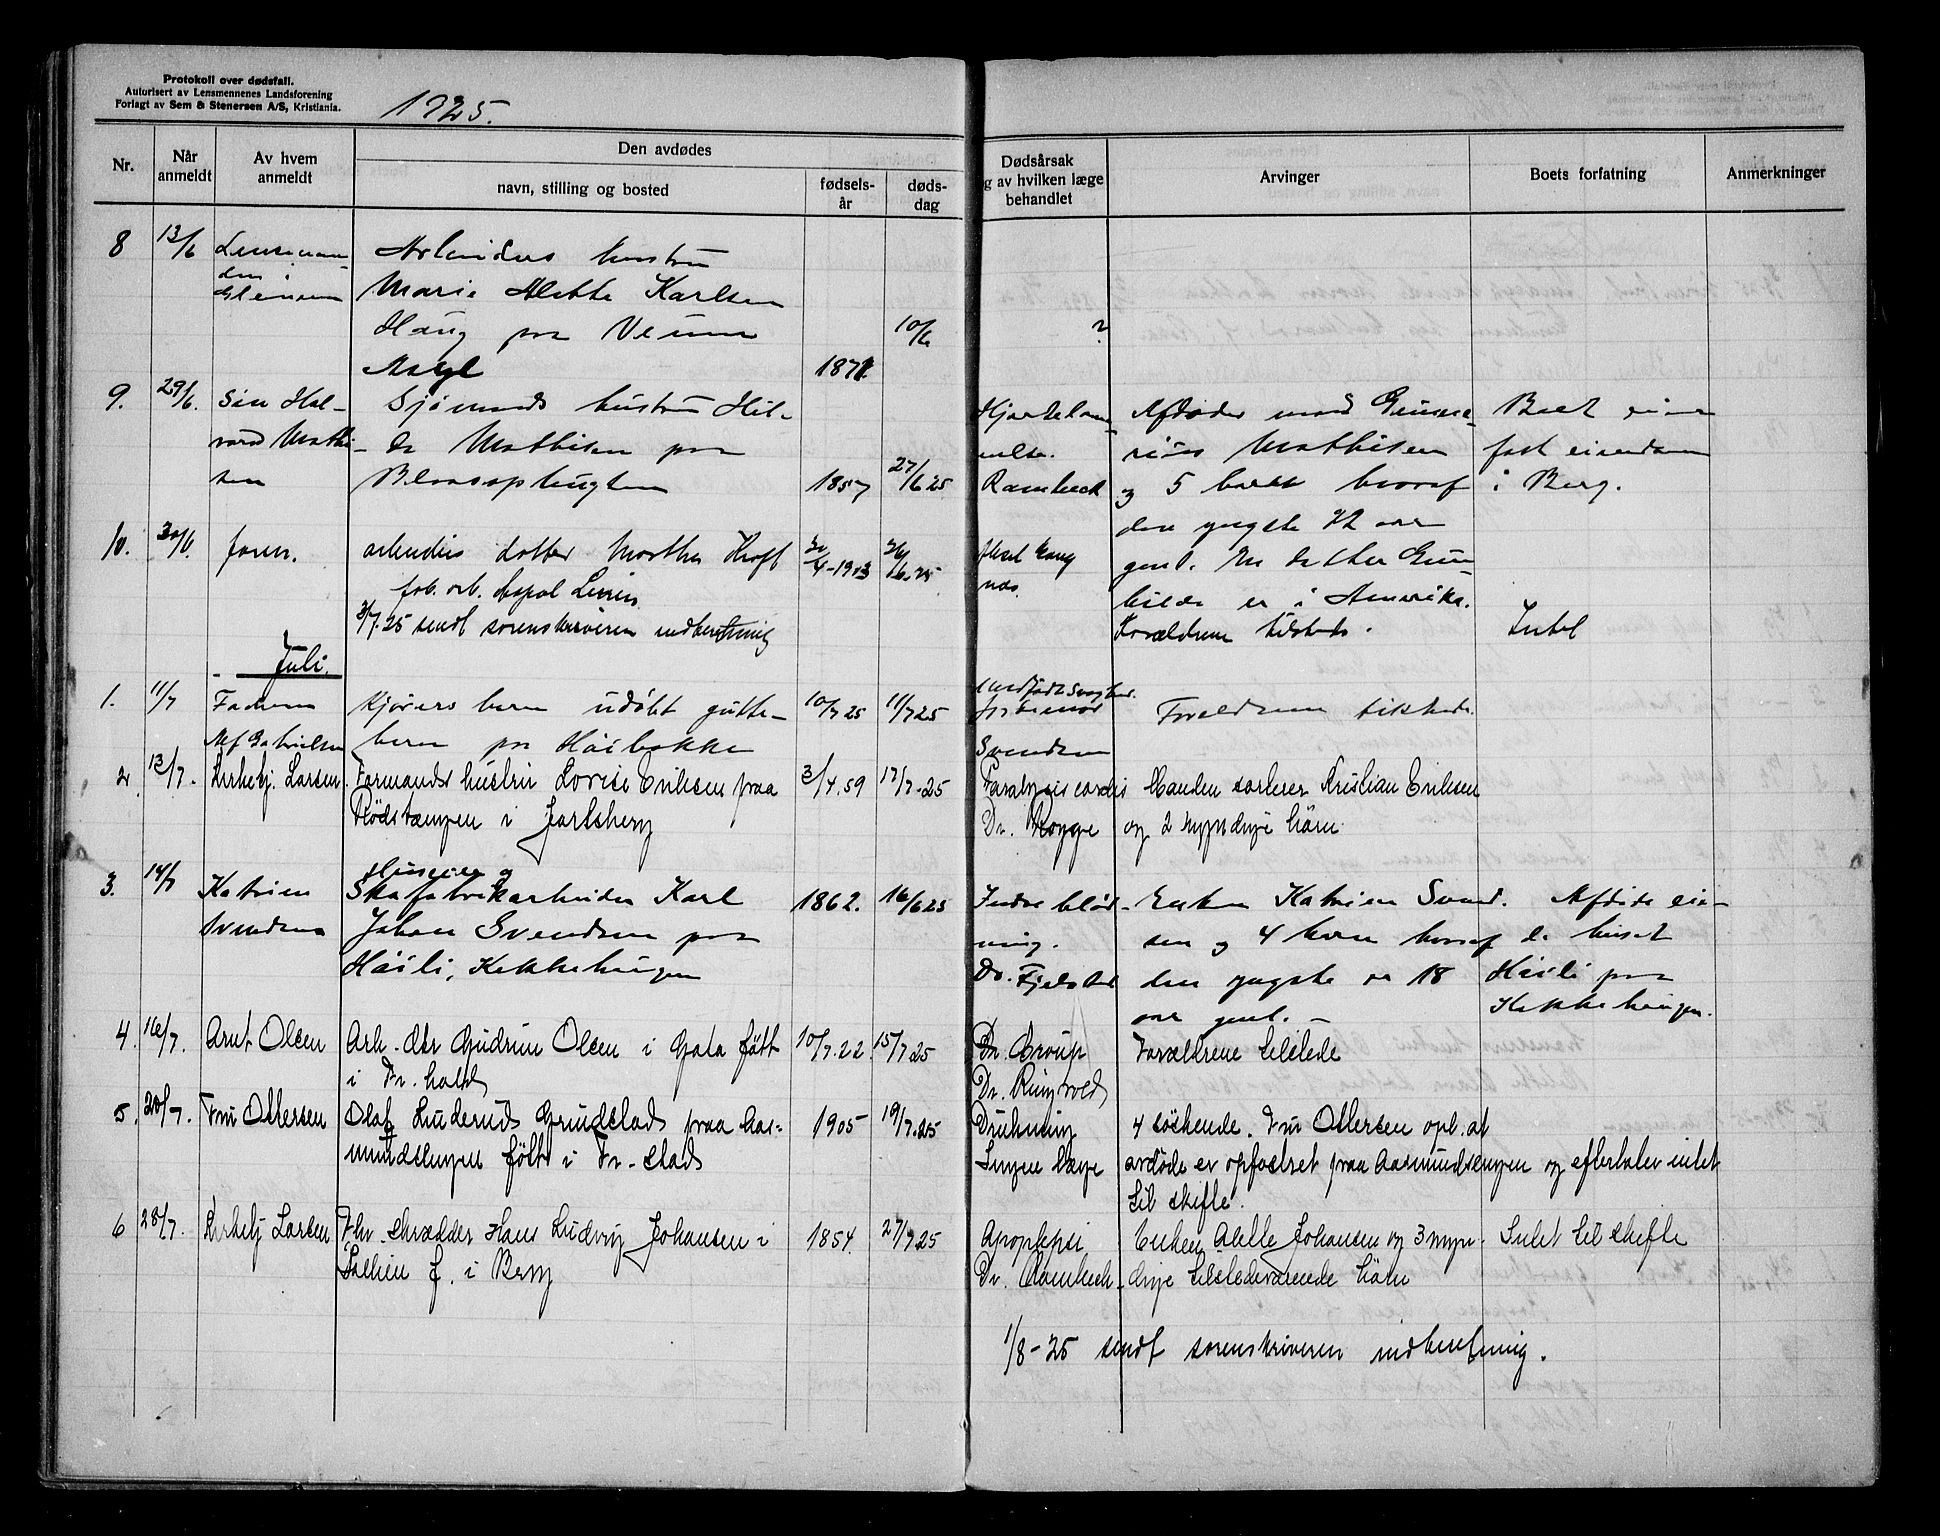 Protokoll over dødsfall.
Autorisert av Lensmennenes Landsforening
Forlagt av Sem & Stenersen A/S, Kristiania.
1925.
Nr.
Når anmeldt
Av hvem anmeldt
Den avdødes
navn, stilling og bosted
fødsels-år
døds-dag
Dødsårsak
g av hvilken læge behandlet
Arvinger
Boets forfatning
Anmerkninger
8 13/6 Lensman-
den i
Glemmen
Arbeiders hustru
Marie Alette Karlsen
Haug paa Veum
Asyl 1871. 10/6 ?
9. 29/6. Søn Hal-
vard Mathi-
sen
Sjømands hustru Hil-
da Mathisen paa
1857 27/6 25
Hjertelam-
melse.
Rambeck
Afdødes mand
Mathisen
og 5 barn hvoraf
den yngste 22 aar
gml. En datter Gun-
hilde er i Amerika.
Boet eier
fast eiendom
i Berg.
10. 30/6. faren.
arbeiders datter Martha
fab. arb.
3/7.25 sendt sorenskriveren indberetning
26/6.25
Forældrene tilstede.
Intet
Juli.
1. 11/7 Faderen
Kjørers barn udøbt gutte-
barn paa
10/7 25 11/7 25
Medfødt svaghed.
Jordemor
Svendsen
Forældrene tilstede.
2 13/7. Kirketj. Larsen.
Formands hustru Lovise Eriksen paa
Rødstangen i Jarlsberg
3/4.59 17/7.25
Paralysis cordis
Dr. Rogge
Manden sorterer Kristian Eriksen
og 2 myndige børn
3. 14/7 Katrine
Svendsen
Huseier og
Skofabrikarbeider Karl
Johan Svendsen paa
Høili,
1862. 16/6 25
Indre blød-
ning.
Dr. Fjelstad
Enken Katrine Svend-
sen og 4 barn hvoraf
den yngste er 18
aar gml. –
Afdøde eie-
de huset
Høili paa
4. 16/7. Arnt Olsen
Arb. dtr Gudrun Olsen i Gata født
i Fr. hald
10/7.22. 15/7 25
Dr. Croup
Dr. Ringvold
Forældrene tilstede
5. 20/7. Fru Ottersen
Olaf Grudstad paa Aas-
mundsengen født i Fr.stad
1905 19/7.25
Drukning
Ingen læge
4 søskende. Fru Ottersen opl. at
avdøde er opfostret paa Aasmundsengen og efterlater intet
til skifte.
6 28/7. Kirketj Larsen
Fhv. skrædder Hans Ludvig Johansen i
f. i Berg
1854. 27/7 25
Apoplepsi
Dr. Rambeck
Enken Alette Johansen og 3 myn-
dige tilstedeværende børn
Intet til skifte
1/8–25 sendt sorenskriveren indberetning.